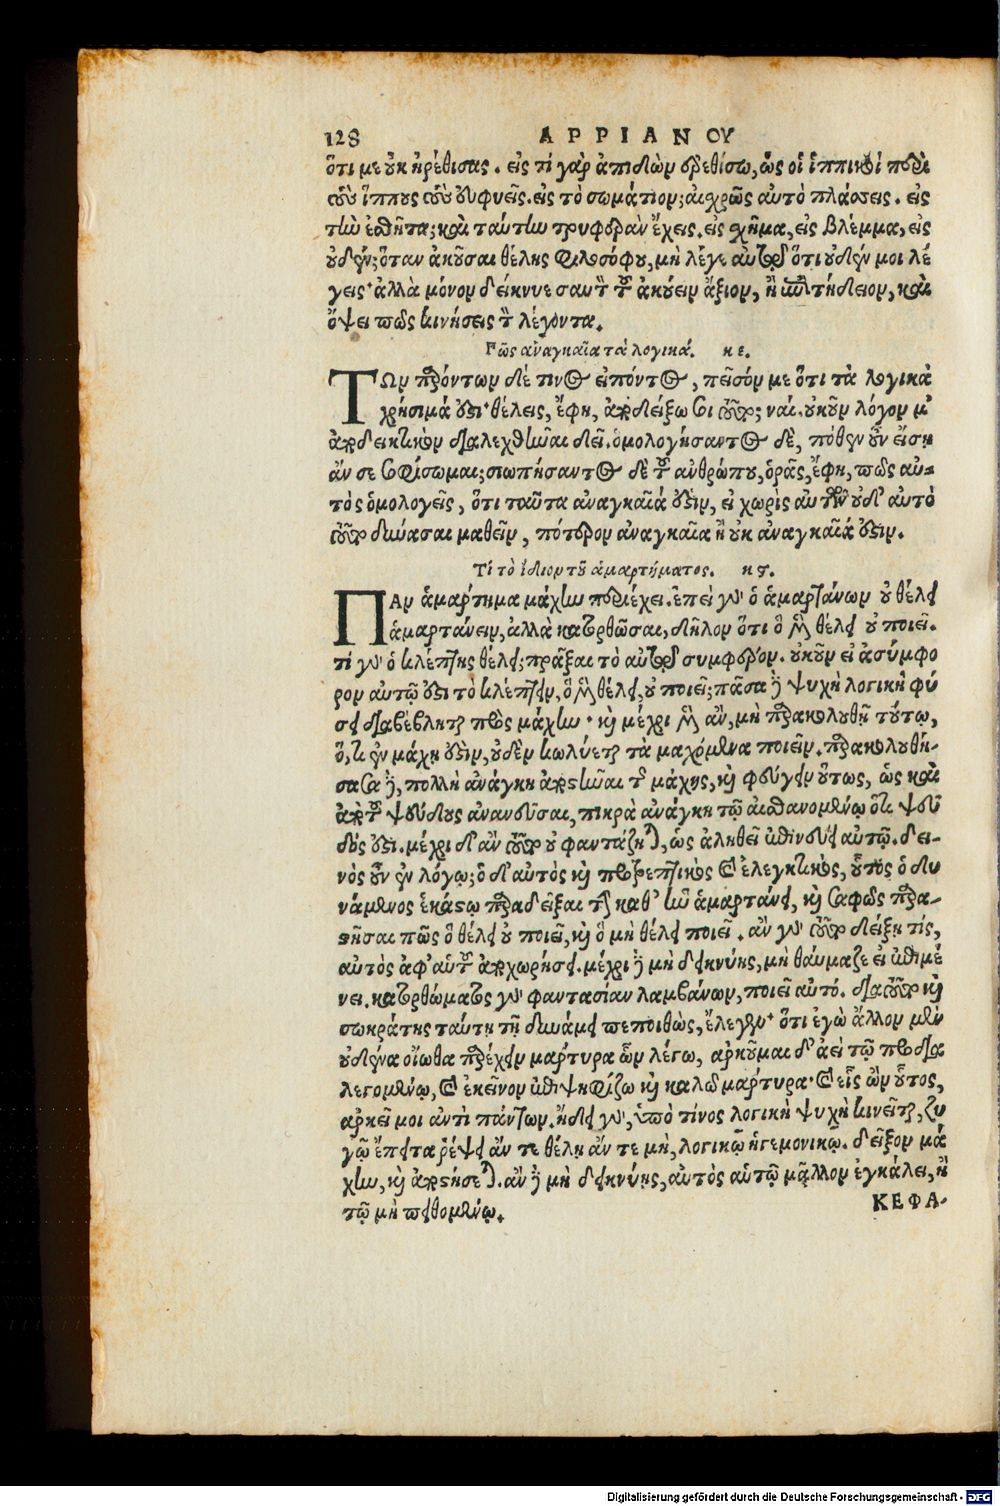 128 ΑΡΡΙΑΝΟΥ
ὅτι με οὐκ ἠρέθισας. εἰς τί γὰρ ἀπιδὼν ἐρεθίσω, ὡς οἱ ἱππικοὶ περὶ
τοὺς ἵππους τοὺς εὐφυεῖς. εἰς τὸ σωμάτιον; αἰσχρῶς αὐτὸ πλάσσεις. εἰς
τὴν ἐσθῆτα; καὶ ταύτην τρυφερὰν ἔχεις. εἰς σχῆμα, εἰς βλέμμα, εἰς
οὐδέν; ὅταν ἀκοῦσαι θέλῃς φιλοσόφου, μὴ λέγε αὐτῷ ὅτι οὐδέν μοι λέ
γεις· ἀλλὰ μόνον δείκνυε σαυτὸν τοῦ ἀκούειν ἄξιον, ἢ ἐπιτήδειον, καὶ
ὄψει πῶς κινήσεις τὸν λέγοντα.
Πῶς ἀναγκαῖα τὰ λογικά. κε.
ΤΩν παρόντων δέ τινος εἰπόντος, πεῖσόν με ὅτι τὰ λογικὰ
χρήσιμά ἐστι· θέλεις, ἔφη, ἀποδείξω σοι τοῦτο; ναί. οὐκοῦν λόγον μ'
ἀποδεικτικὸν διαλεχθῆναι δεῖ. ὁμολογήσαντος δὲ, πόθεν οὖν εἴσῃ
ἄν σε σοφίσωμαι; σιωπήσαντος δὲ τοῦ ἀνθρώπου, ὁρᾷς, ἔφη, πῶς αὐ-
τὸς ὁμολογεῖς, ὅτι ταῦτα ἀναγκαῖά ἐστιν, εἰ χωρὶς αὐτῶν οὐδ' αὐτὸ
τοῦτο δύνασαι μαθεῖν, πότερον ἀναγκαῖα ἢ οὐκ ἀναγκαῖά ἐστιν.
Τί τὸ ἴδιον τοῦ ἁμαρτήματος. κϛ.
ΠΑν ἁμάρτημα μάχην περιέχει. ἐπεὶ γὰρ ὁ ἁμαρτάνων οὐ θέλει
ἁμαρτάνειν, ἀλλὰ κατορθῶσαι, δῆλον ὅτι ὃ μὲν θέλει οὐ ποιεῖ.
τί γὰρ ὁ κλέπτης θέλει; πρᾶξαι τὸ αὑτῷ συμφέρον. οὐκοῦν εἰ ἀσύμφο
ρον αὐτῷ ἐστι τὸ κλέπτειν, ὃ μὲν θέλει, οὐ ποιεῖ; πᾶσα δὲ ψυχὴ λογικὴ φύ
σει διαβέβληται πρὸς μάχην· καὶ μέχρι μὲν ἂν, μὴ παρακολουθῇ τούτῳ,
ὅτι ἐν μάχῃ ἐστὶν, οὐδὲν κωλύεται τὰ μαχόμενα ποιεῖν. παρακολουθή-
σασα δὲ, πολλὴ ἀνάγκη ἀποστῆναι τῆς μάχης, καὶ φεύγειν οὕτως, ὡς καὶ
ἀπὸ τοῦ ψεύδους ἀνανεῦσαι, πικρὰ ἀνάγκη τῷ αἰσθανομένῳ ὅτι ψεῦ
δός ἐστι. μέχρι δ' ἂν τοῦτο οὐ φαντάζηται, ὡς ἀληθεῖ ἐπινεύει αὐτῷ. δει-
νὸς οὖν ἐν λόγῳ; ὁ δ' αὐτὸς καὶ προτρεπτικὸς καὶ ἐλεγκτικὸς, οὗτος ὁ δυ
νάμενος ἑκάστῳ παραδεῖξαι τὴν καθ' ἣν ἁμαρτάνει, καὶ σαφῶς παρα-
στῆσαι πῶς ὃ θέλει οὐ ποιεῖ, καὶ ὃ μὴ θέλει ποιεῖ. ἂν γὰρ τοῦτο δείξῃ τίς,
αὐτὸς ἀφ' αὑτοῦ ἀποχωρήσει. μέχρι δὲ μὴ δεικνύῃς, μὴ θαύμαζε εἰ ἐπιμέ
νει. κατορθώματος γὰρ φαντασίαν λαμβάνων, ποιεῖ αὐτό. διὰ τοῦτο καὶ
σωκράτης ταύτῃ τῇ δυνάμει πεποιθὼς, ἔλεγεν· ὅτι ἐγὼ ἄλλον μὲν
οὐδένα οἴωθα παρέχειν μάρτυρα ὧν λέγω, ἀρκοῦμαι δ' ἀεὶ τῷ προσδια
λεγομένῳ, καὶ ἐκεῖνον ἐπιψηφίζω καὶ καλῶ μάρτυρα· καὶ εἷς ὢν οὗτος,
ἀρκεῖ μοι ἀντὶ πάντων. ᾔδει γὰρ, ὑπὸ τίνος λογικὴ ψυχὴ κινεῖται, ζυ
γῷ ἔπειτα ῥέψει ἄν τε θέλῃ ἄν τε μὴ, λογικῷ ἡγεμονικῷ. δεῖξον μά
χην, καὶ ἀποστήσεται. ἂν δὲ μὴ δεικνύῃς, αὐτὸς αὑτῷ μᾶλλον ἐγκάλει, ἢ
τῷ μὴ πειθομένῳ.
ΚΕΦΑ-
Digitalisierung gefördert durch die Deutsche Forschungsgemeinschaft - DFG